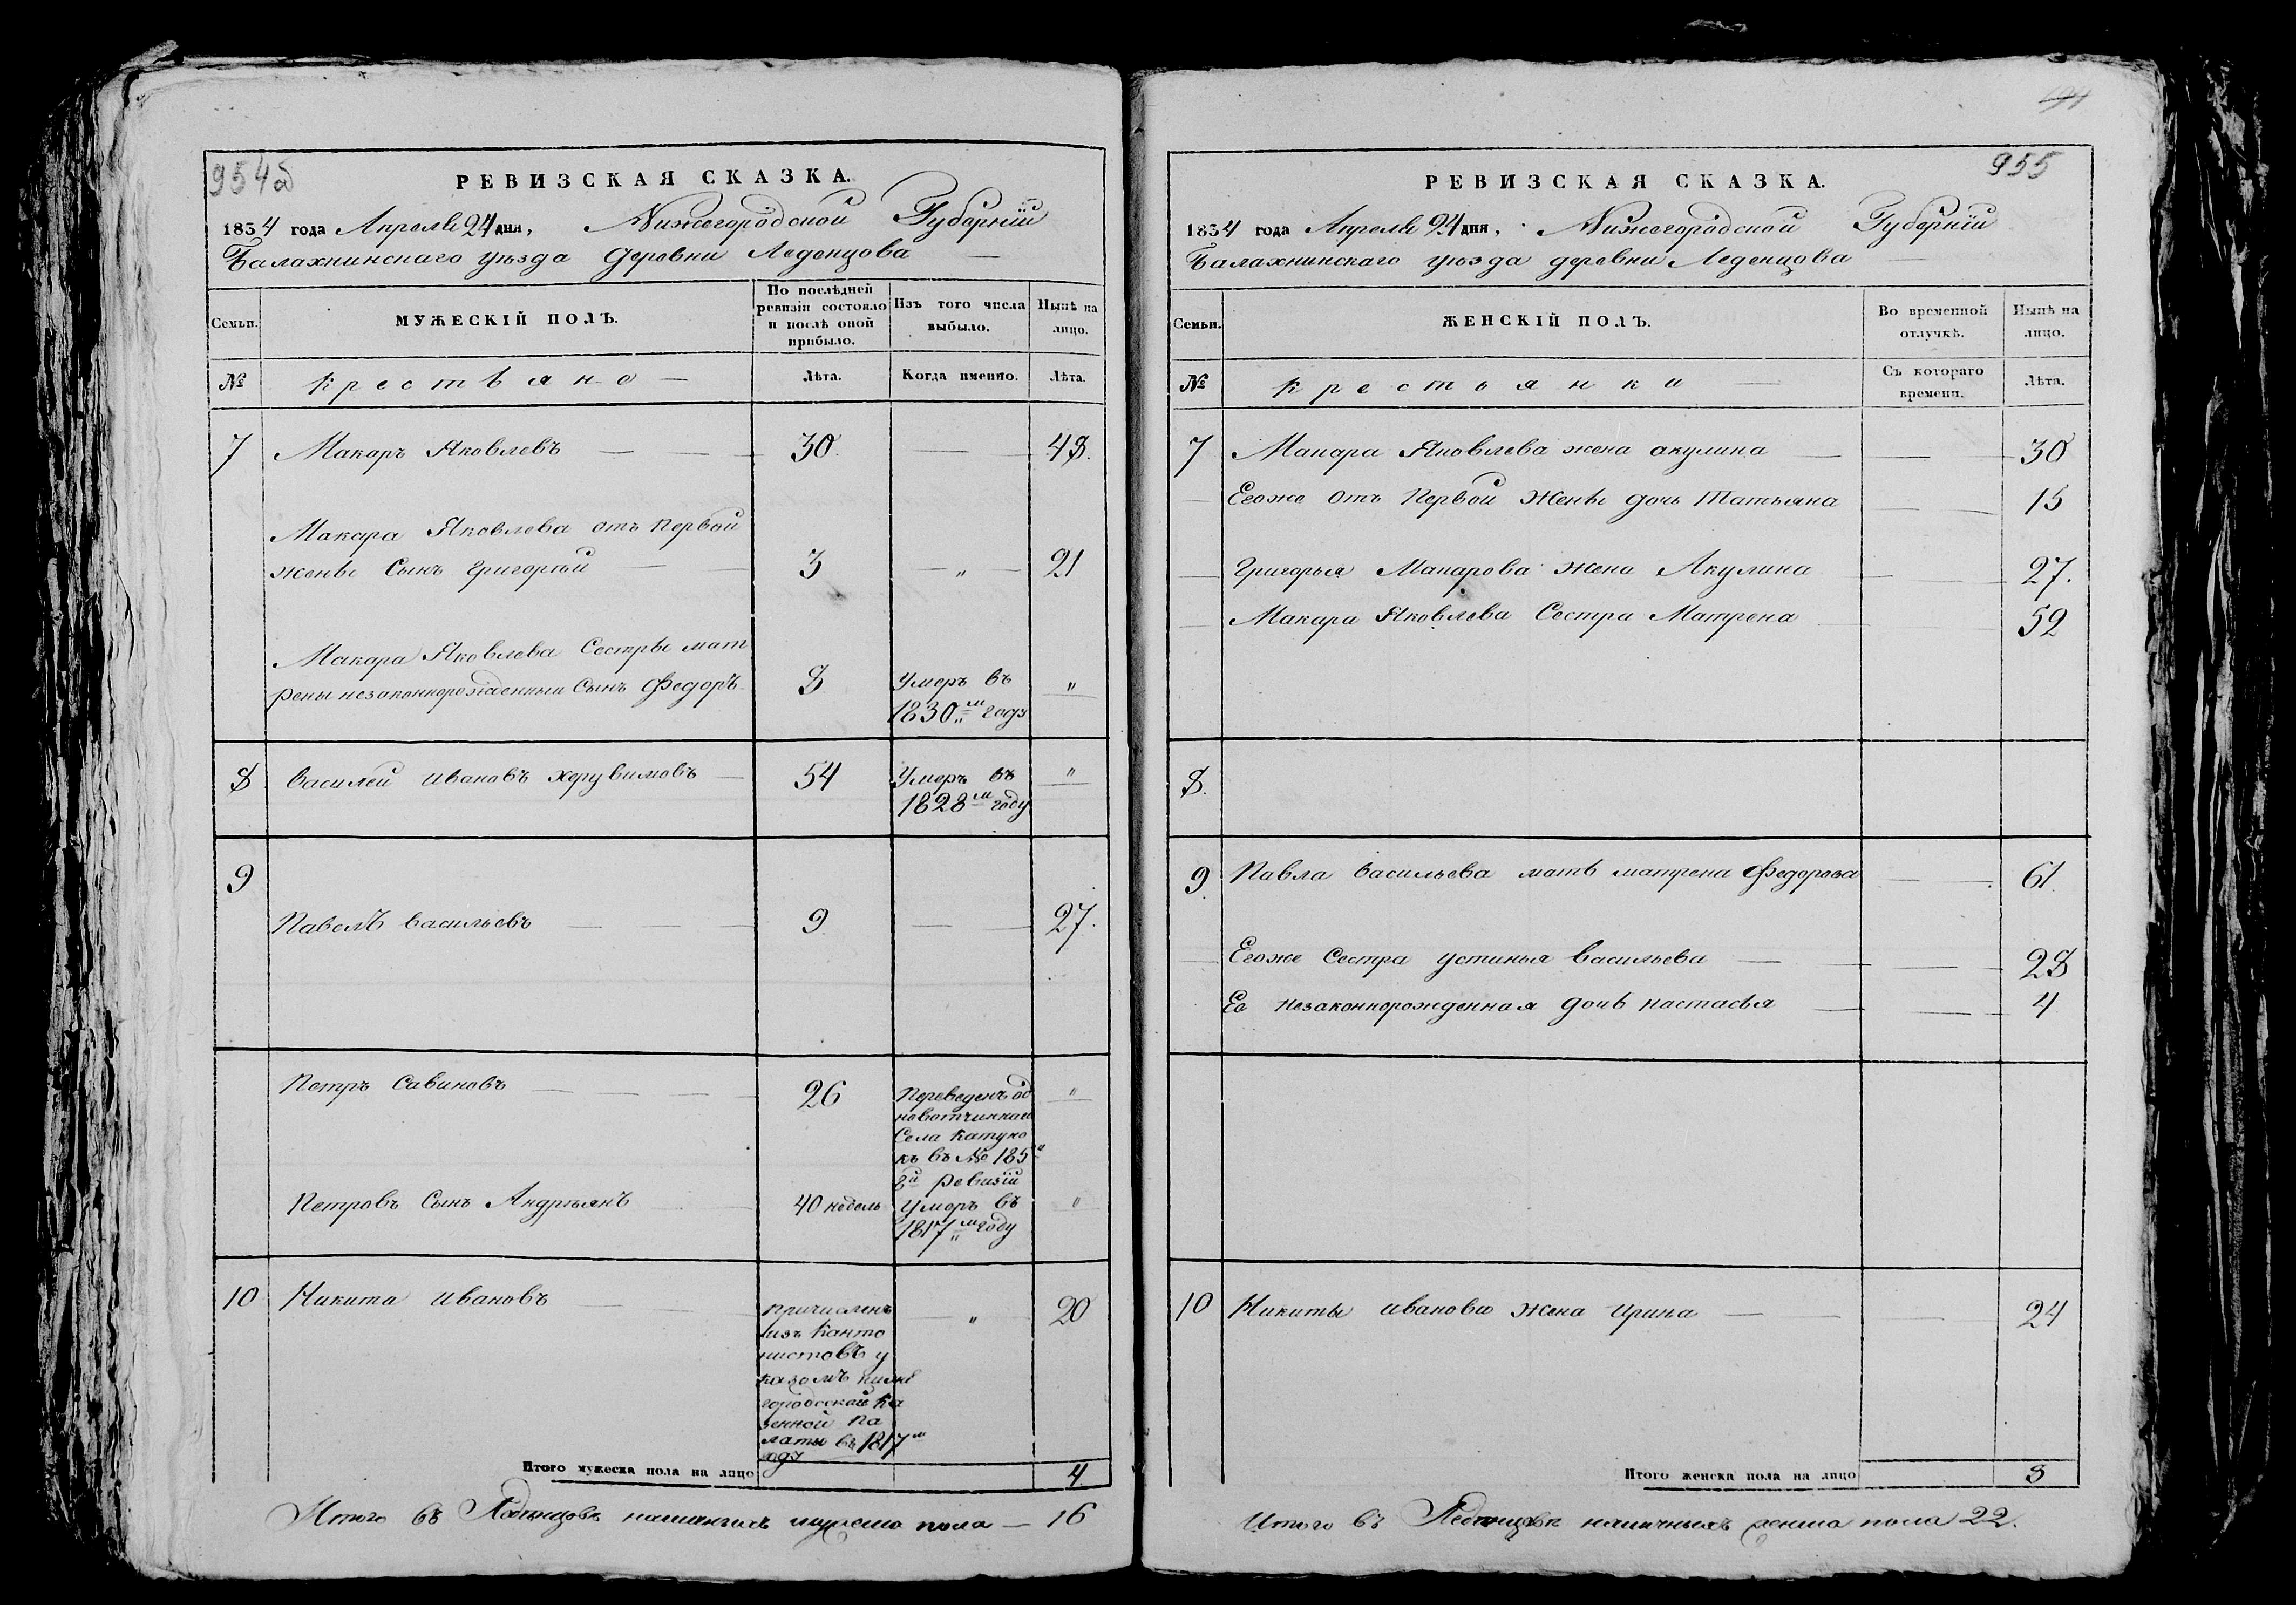 954об
РЕВИЗСКАЯ СКАЗКА.
1834 года Апреля 24 дня, Нижегородской Губернiи
Балахнинскаго уѣзда деревни Леденцова
Семьи.
МУЖЕСКIЙ ПОЛЪ.
По послѣдней
ревизiи состояло
и послѣ оной
прибыло.
Изъ того числа
выбыло.
Нынѣ на
лицо.
№
Крестьяне
Лѣта.
Когда именно.
Лѣта.
7 Макаръ Яковлевъ — 30. — 48.
Макара Яковлева отъ первой
жены Сынъ Григорiй — 3 — „ — 21
Макара Яковлева Сестры мат
рены незаконнорожденный Сынъ Федоръ 8 Умеръ въ „
1830.м году
8 Василей Ивановъ херувимовъ — 54 Умеръ въ „
1828м году
9
Павелъ Васильевъ — 9 — 27.
Петръ Савиновъ — 26 Переведенъ од „
новотчиннаго
Села Катуно
къ въ № 185й
8й Ревизiи
Петровъ Сынъ Андрѣянъ 40 недель Умеръ въ „
1817м году
10 Никита Ивановъ — причисленъ — „ — 20
изъ Канто
нистовъ у
казомъ ниже
городской Ка
зенной Па
латы въ 1817м
году
Итого мужеска пола на лицо 4
Итого въ наличныхъ мужеска пола — 16
955
РЕВИЗСКАЯ СКАЗКА.
1834 года Апреля 24 дня, Нижегородской Губернiи
Балахнинскаго уѣзда деревни Леденцова
Семьи.
ЖЕНСКIЙ ПОЛЪ.
Во временной
отлучкѣ.
Нынѣ на
лицо.
№
Крестьянки
Съ котораго
времени.
Лѣта.
7 Макара Яковлева жена акулина — 30
Егоже отъ Первой Жены дочь Татьяна — 15
Григорья Макарова жена Акулина — 27.
Макара Яковлева Сестра Матрена — 52
8.
9 Павла Васильева мать матрена Федорова — 61.
Егоже Сестра устинья Васильева — 28
Ее незаконнорожденная дочь настасья — 4
10 Никиты иванова жена Ирина — 24
Итого женска пола на лицо 8
Итого въ наличныхъ женска пола 22.